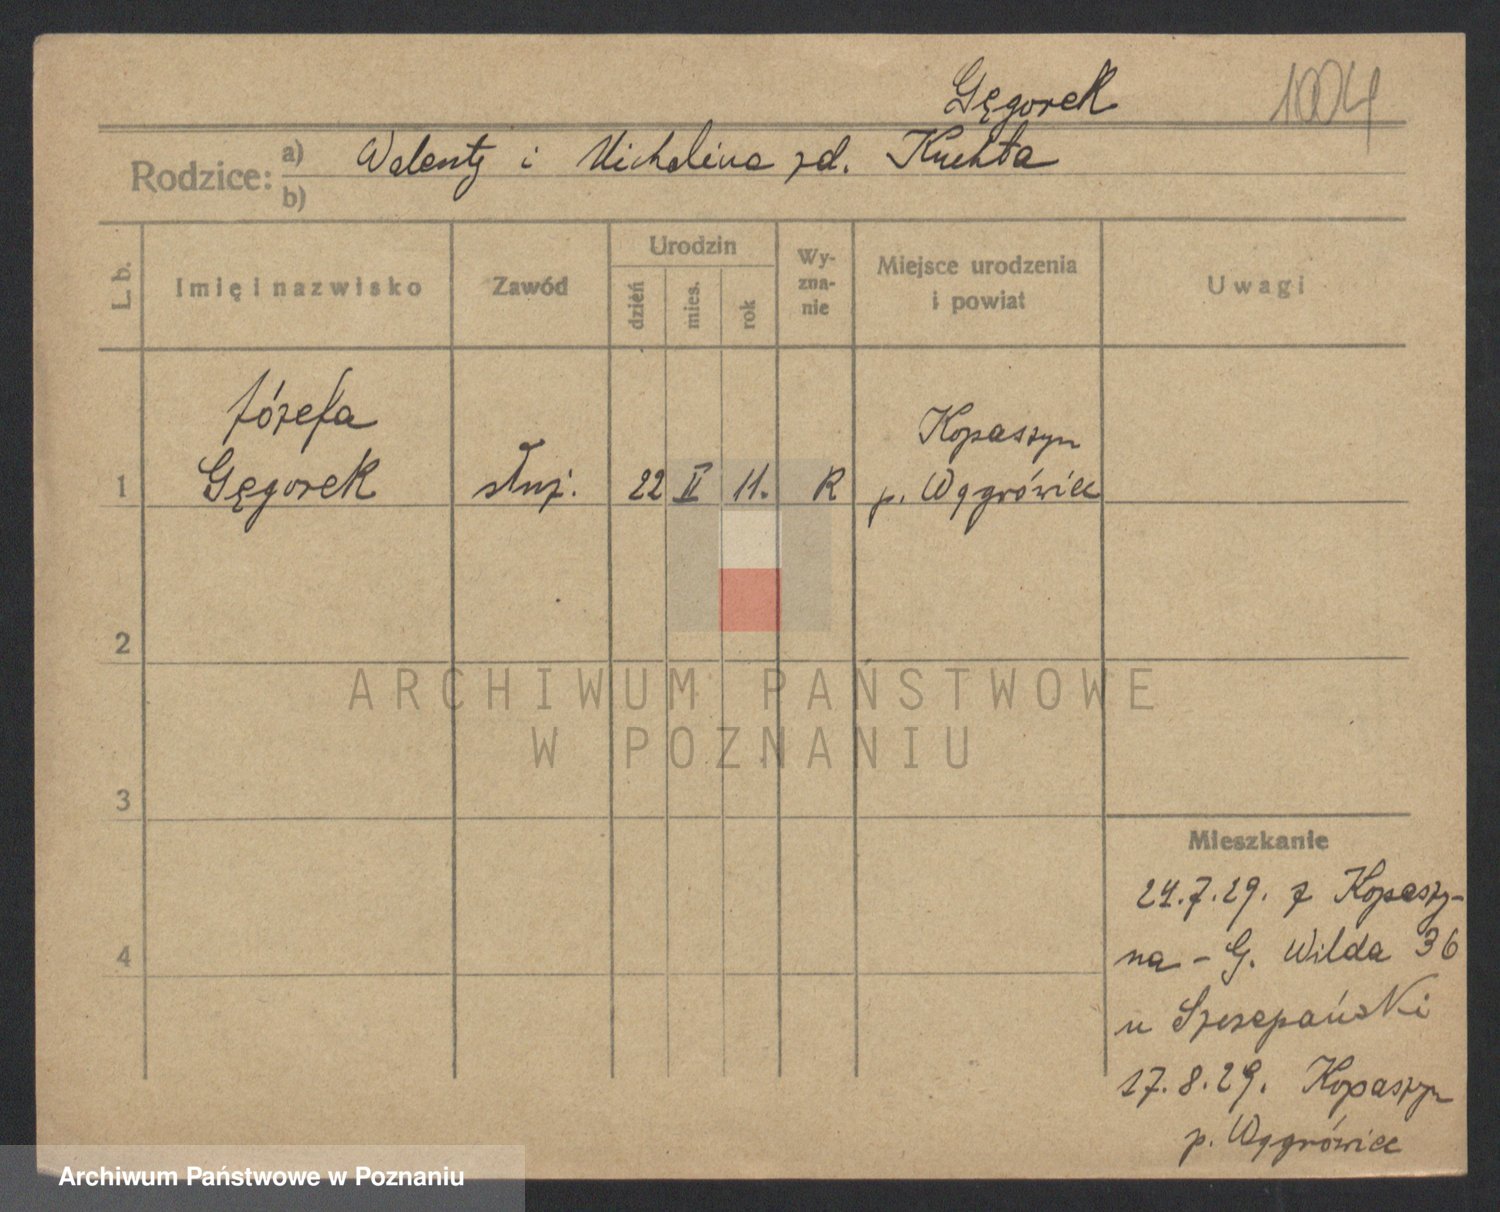 Gęgorek 1004
Rodzice: a) Walenty i Michalina zd. Kuchta
b)
L. b. Imię i nazwisko Zawód Urodzin dzień mies. rok Wyznanie Miejsce urodzenia i powiat Uwagi
Józefa
Gęgorek
1 służ. 22 II 11. R
Kopaszyn
p. Wągrówiec
2
3
4
Mieszkanie
24.7.29. z Kopaszy-
na - G. Wilda 36
u Szczepański
17.8.29. Kopaszyn
p. Wągrówiec
ARCHIWUM PAŃSTWOWE
W POZNANIU
Archiwum Państwowe w Poznaniu